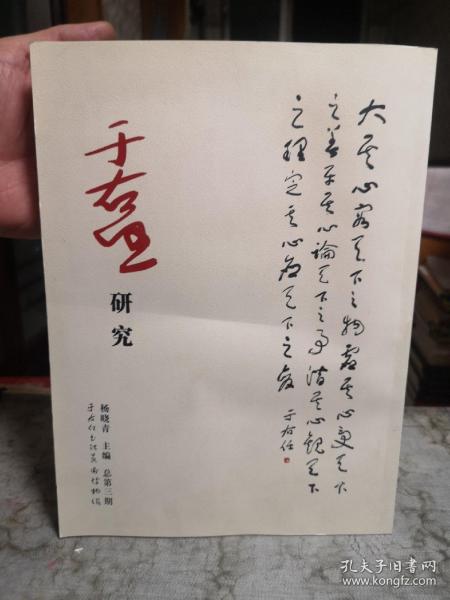 大其心容天下之物虚其心受天下
之善平其心论天下之事潜其心观天下
之理定其心应天下之变
于右任
于右任
研究
杨晓青 主编 总第三期
于右任书法
孔夫子旧书网
www.kongfz.com